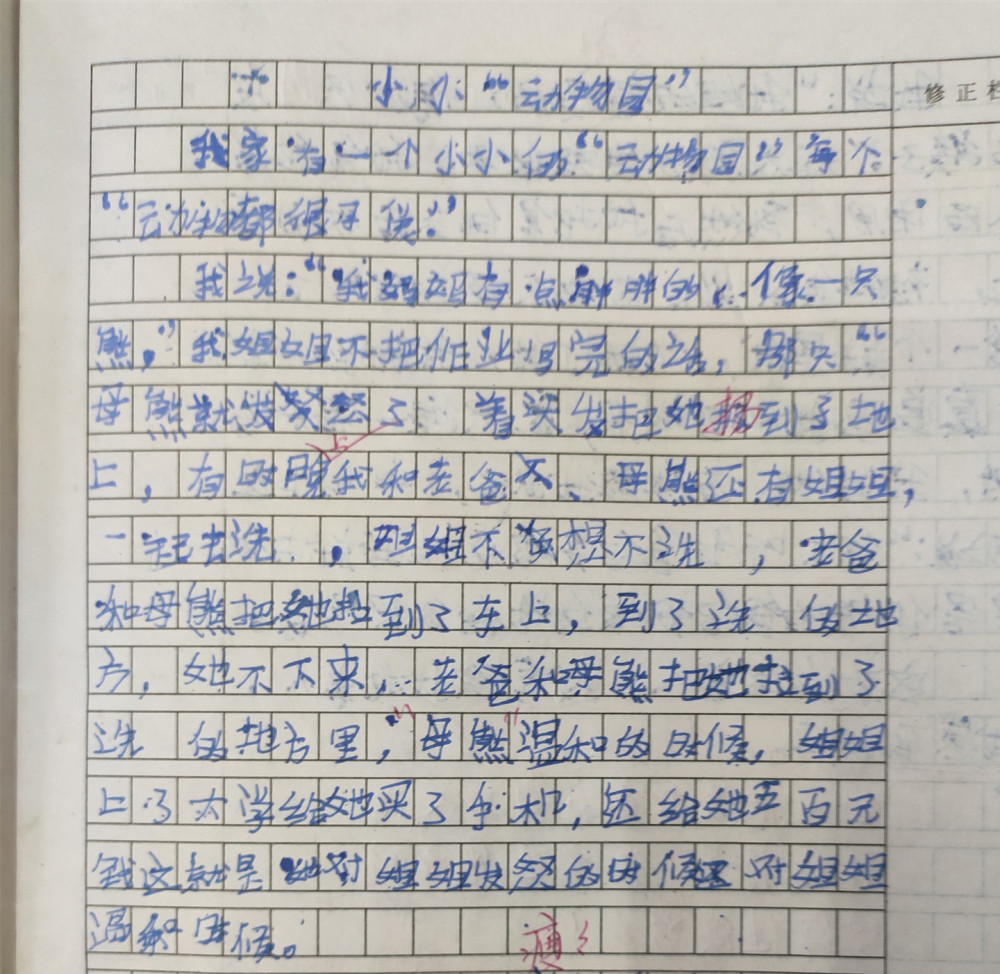 小小"动物园"
修正栏
我家有一个小小的"动物园"每个
"动物都很可优."
我说:"我妈妈有点胖胖的,像一只
熊,"我姐姐不把作业写完的话,那只"
母熊就发怒了 着头发把她 到了地
上,有时 我和老爸 、母熊还有姐姐,
一起去洗 ,姐姐不 想不洗 ,老爸
和母熊把她拉到了车上,到了洗 的地
方,她不下来,老爸和母熊把她拉到了
洗 的地方里,"母熊"温和的时候,姐姐
上了大学给她买了手机,还给她五百元
钱这就是她对姐姐发怒的时候 对姐姐
温和 候。